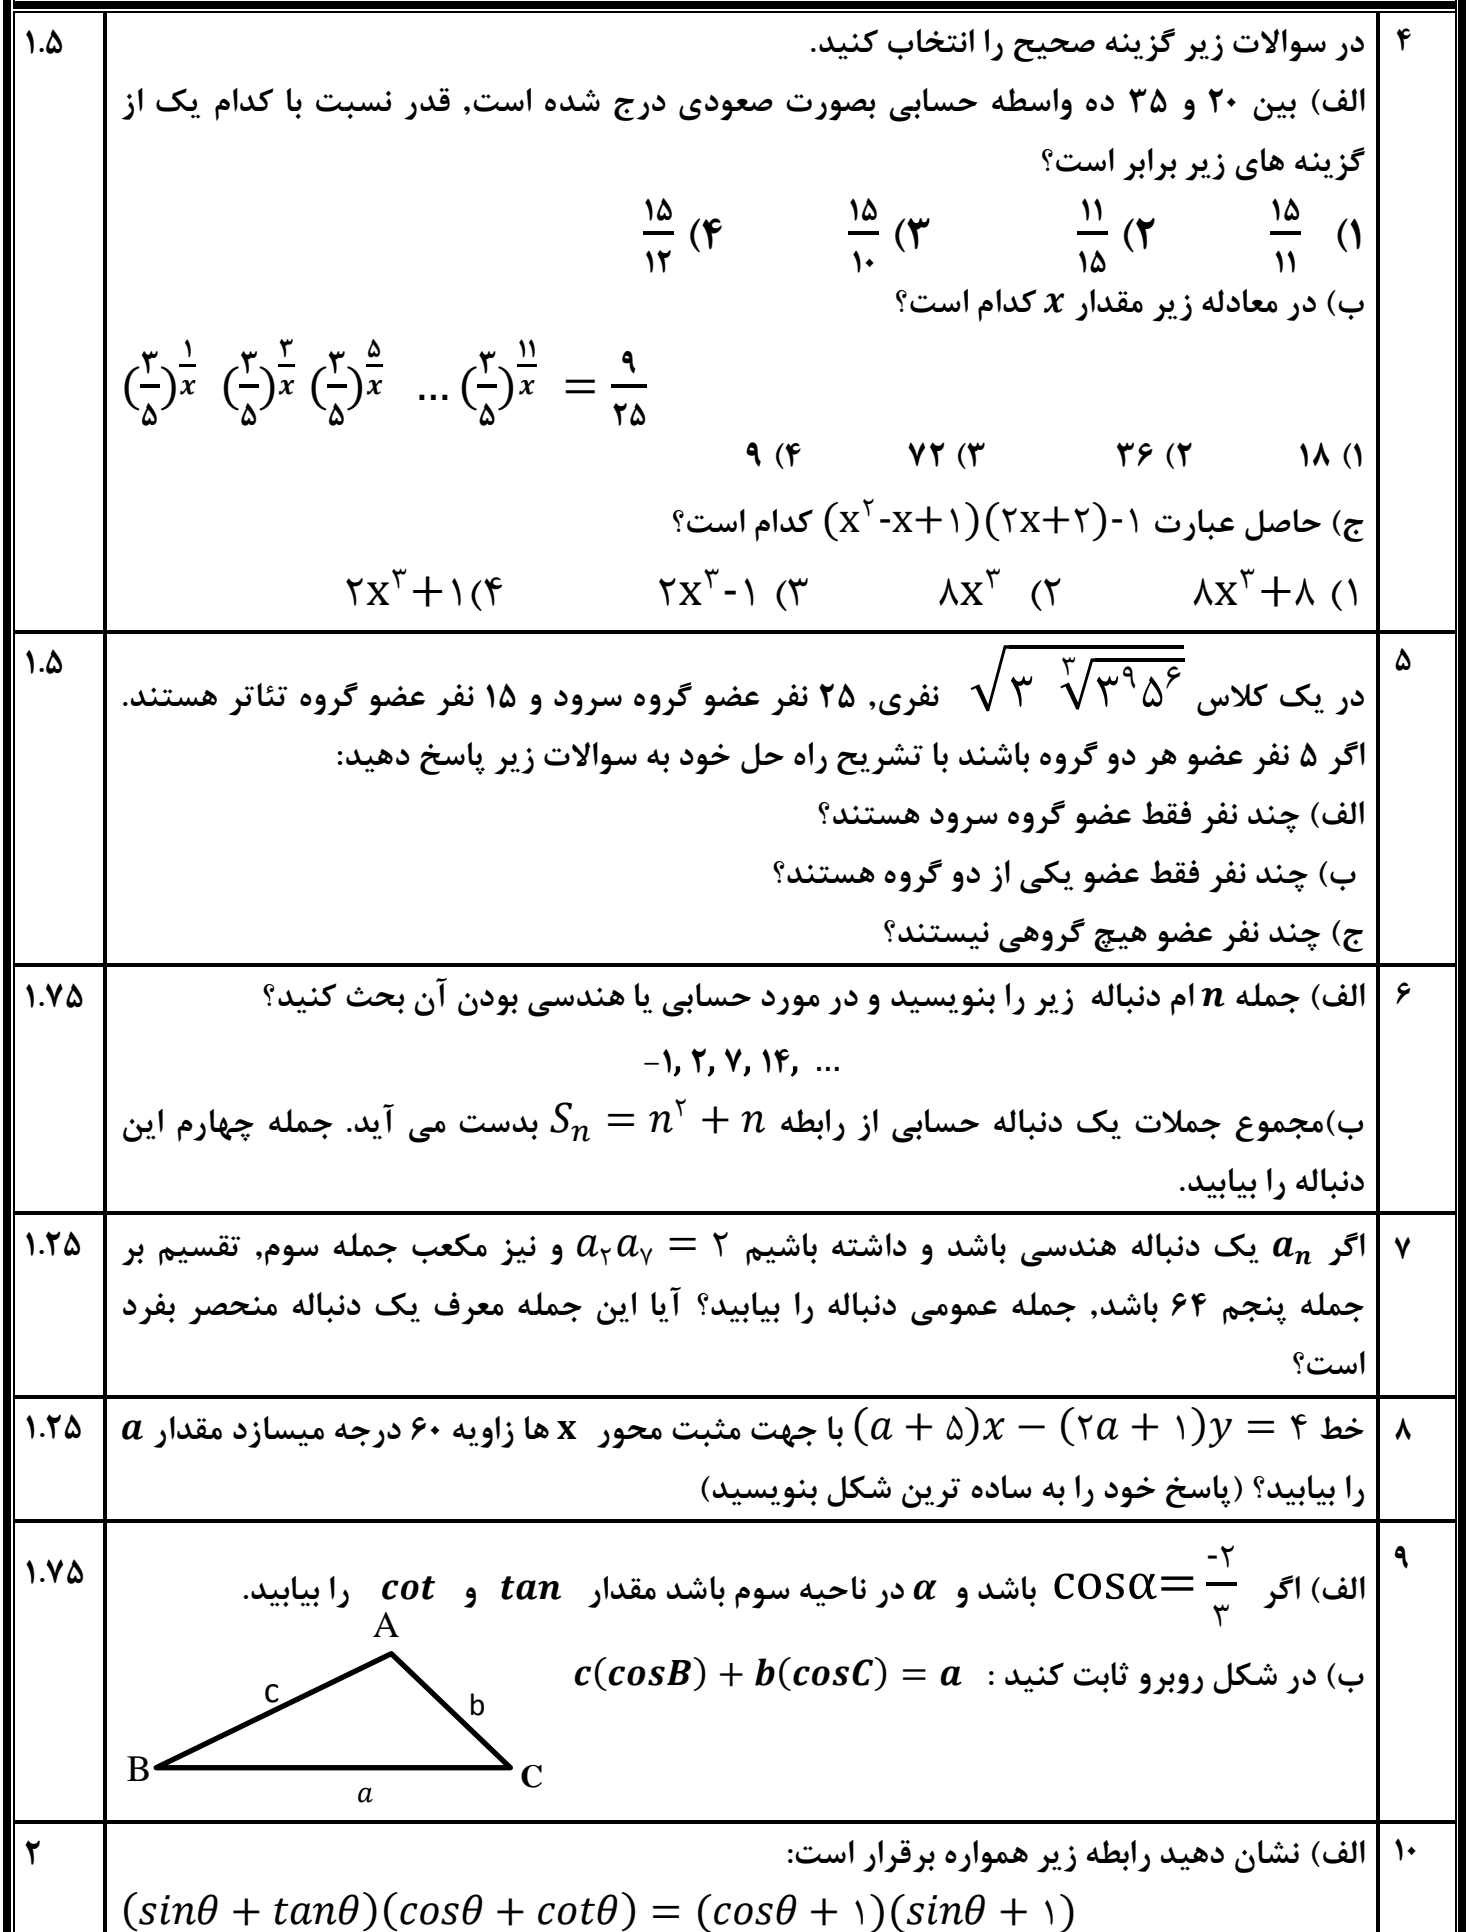 ۴ در سوالات زیر گزینه صحیح را انتخاب کنید. ۱.۵
الف) بین ۲۰ و ۳۵ ده واسطه حسابی بصورت صعودی درج شده است, قدر نسبت با کدام یک از
گزینه های زیر برابر است؟
۱) ۱۵/۱۱ ۲) ۱۱/۱۵ ۳) ۱۵/۱۰ ۴) ۱۵/۱۲
ب) در معادله زیر مقدار x کدام است؟
(۳/۵)^(۱/x) (۳/۵)^(۳/x) (۳/۵)^(۵/x) ... (۳/۵)^(۱۱/x) = ۹/۲۵
۱) ۱۸ ۲) ۳۶ ۳) ۷۲ ۴) ۹
ج) حاصل عبارت (x^۲-x+۱)(۲x+۲)-۱ کدام است؟
۱) ۸x^۳+۸ ۲) ۸x^۳ ۳) ۲x^۳-۱ ۴) ۲x^۳+۱
۵ در یک کلاس √(۳ ∛(۳^۹ ۵^۶)) نفری, ۲۵ نفر عضو گروه سرود و ۱۵ نفر عضو گروه تئاتر هستند. ۱.۵
اگر ۵ نفر عضو هر دو گروه باشند با تشریح راه حل خود به سوالات زیر پاسخ دهید:
الف) چند نفر فقط عضو گروه سرود هستند؟
ب) چند نفر فقط عضو یکی از دو گروه هستند؟
ج) چند نفر عضو هیچ گروهی نیستند؟
۶ الف) جمله n ام دنباله زیر را بنویسید و در مورد حسابی یا هندسی بودن آن بحث کنید؟ ۱.۷۵
−۱, ۲, ۷, ۱۴, ...
ب)مجموع جملات یک دنباله حسابی از رابطه S_n = n^۲ + n بدست می آید. جمله چهارم این
دنباله را بیابید.
۷ اگر a_n یک دنباله هندسی باشد و داشته باشیم a_۲a_۷ = ۲ و نیز مکعب جمله سوم, تقسیم بر ۱.۲۵
جمله پنجم ۶۴ باشد, جمله عمومی دنباله را بیابید؟ آیا این جمله معرف یک دنباله منحصر بفرد
است؟
۸ خط (a + ۵)x − (۲a + ۱)y = ۴ با جهت مثبت محور x ها زاویه ۶۰ درجه میسازد مقدار a ۱.۲۵
را بیابید؟ (پاسخ خود را به ساده ترین شکل بنویسید)
۹ الف) اگر cosα=-۲/۳ باشد و α در ناحیه سوم باشد مقدار tan و cot را بیابید. ۱.۷۵
ب) در شکل روبرو ثابت کنید : c(cosB) + b(cosC) = a
A
c b
B C
a
۱۰ الف) نشان دهید رابطه زیر همواره برقرار است: ۲
(sinθ + tanθ)(cosθ + cotθ) = (cosθ + ۱)(sinθ + ۱)